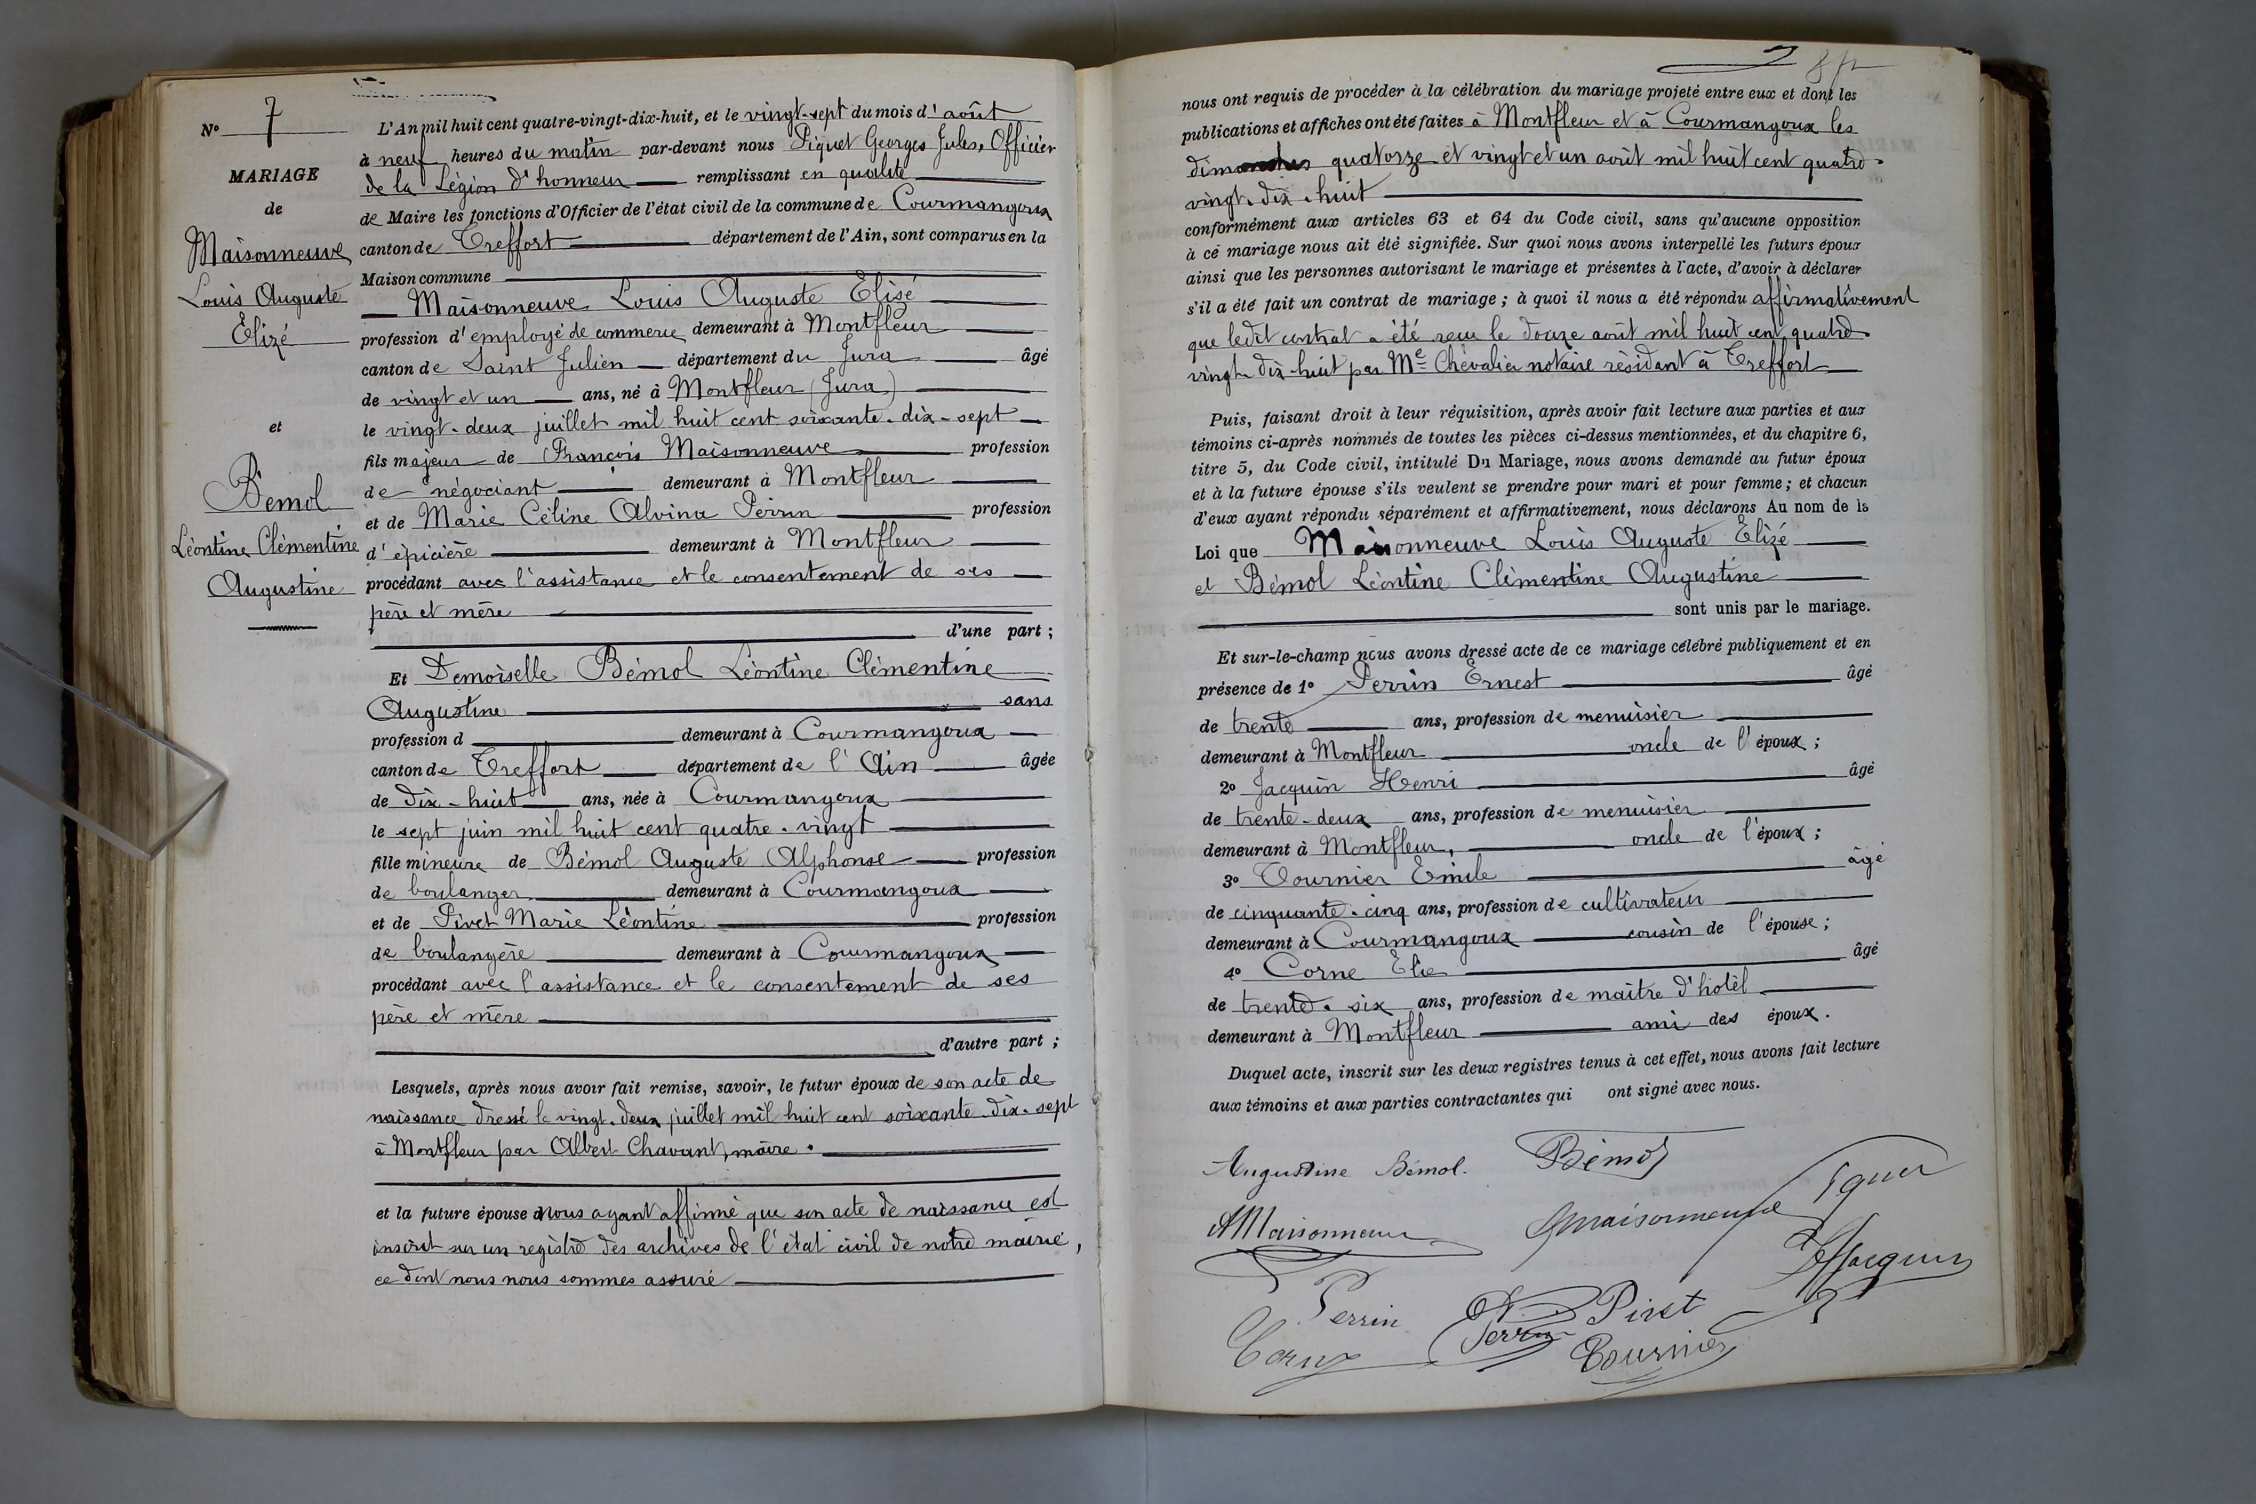 N° 7
MARIAGE
de
Maisonneuve
Louis Auguste
Elizé
et
Bémol
Léontine Clémentine
Augustine
L'An mil huit cent quatre-vingt-dix-huit, et le vingt-sept du mois d'août
à neuf heures du matin par-devant nous Piquet Georges Jules, Officier
de la Légion d'honneur remplissant en qualité
de Maire les fonctions d'Officier de l'état civil de la commune de Courmangoux
canton de Treffort département de l'Ain, sont comparus en la
Maison commune
Maisonneuve Louis Auguste Elisé
profession d'employé de commerce demeurant à Montfleur
canton de Saint Julien département du Jura âgé
de vingt et un ans, né à Montfleur (Jura)
le vingt-deux juillet mil huit cent soixante-dix-sept
fils majeur de François Maisonneuve profession
de négociant demeurant à Montfleur
et de Marie Céline Alvina Perrin profession
d'épicière demeurant à Montfleur
procédant avec l'assistance et le consentement de ses
père et mère
d'une part ;
Et Demoiselle Bémol Léontine Clémentine
Augustine sans
profession d demeurant à Courmangoux
canton de Treffort département de l'Ain âgée
de dix-huit ans, née à Courmangoux
le sept juin mil huit cent quatre-vingt
fille mineure de Bémol Auguste Alphonse profession
de boulanger demeurant à Courmangoux
et de Pivet Marie Léontine profession
de boulangère demeurant à Courmangoux
procédant avec l'assistance et le consentement de ses
père et mère
d'autre part ;
Lesquels, après nous avoir fait remise, savoir, le futur époux de son acte de
naissance dressé le vingt-deux juillet mil huit cent soixante-dix-sept
à Montfleur par Albert Chavant, maire.
et la future épouse nous ayant affirmé que son acte de naissance est
inscrit sur un registre des archives de l'état civil de notre mairie,
ce dont nous nous sommes assuré
nous ont requis de procéder à la célébration du mariage projeté entre eux et dont les
publications et affiches ont été faites à Montfleur et à Courmangoux les
dimanches quatorze et vingt et un août mil huit cent quatre-
vingt-dix-huit
conformément aux articles 63 et 64 du Code civil, sans qu'aucune opposition
à ce mariage nous ait été signifiée. Sur quoi nous avons interpellé les futurs époux
ainsi que les personnes autorisant le mariage et présentes à l'acte, d'avoir à déclarer
s'il a été fait un contrat de mariage ; à quoi il nous a été répondu affirmativement
que ledit contrat a été reçu le douze août mil huit cent quatre-
vingt-dix-huit par Me Chevalier notaire résidant à Treffort
Puis, faisant droit à leur réquisition, après avoir fait lecture aux parties et aux
témoins ci-après nommés de toutes les pièces ci-dessus mentionnées, et du chapitre 6,
titre 5, du Code civil, intitulé Du Mariage, nous avons demandé au futur époux
et à la future épouse s'ils veulent se prendre pour mari et pour femme ; et chacun
d'eux ayant répondu séparément et affirmativement, nous déclarons Au nom de la
Loi que Maisonneuve Louis Auguste Elizé
et Bémol Léontine Clémentine Augustine
sont unis par le mariage.
Et sur-le-champ nous avons dressé acte de ce mariage célébré publiquement et en
présence de 1° Perrin Ernest âgé
de trente ans, profession de menuisier
demeurant à Montfleur oncle de l'époux ;
2° Jacquin Henri âgé
de trente-deux ans, profession de menuisier
demeurant à Montfleur, oncle de l'époux ;
3° Tournier Emile âgé
de cinquante-cinq ans, profession de cultivateur
demeurant à Courmangoux cousin de l'épouse ;
4° Corne Elie âgé
de trente-six ans, profession de maître d'hôtel
demeurant à Montfleur ami des époux.
Duquel acte, inscrit sur les deux registres tenus à cet effet, nous avons fait lecture
aux témoins et aux parties contractantes qui ont signé avec nous.
Augustine Bémol. Bémol
AMaisonneuve Maisonneuve
Jacquin
Perrin Perrin Pivet
Tournier